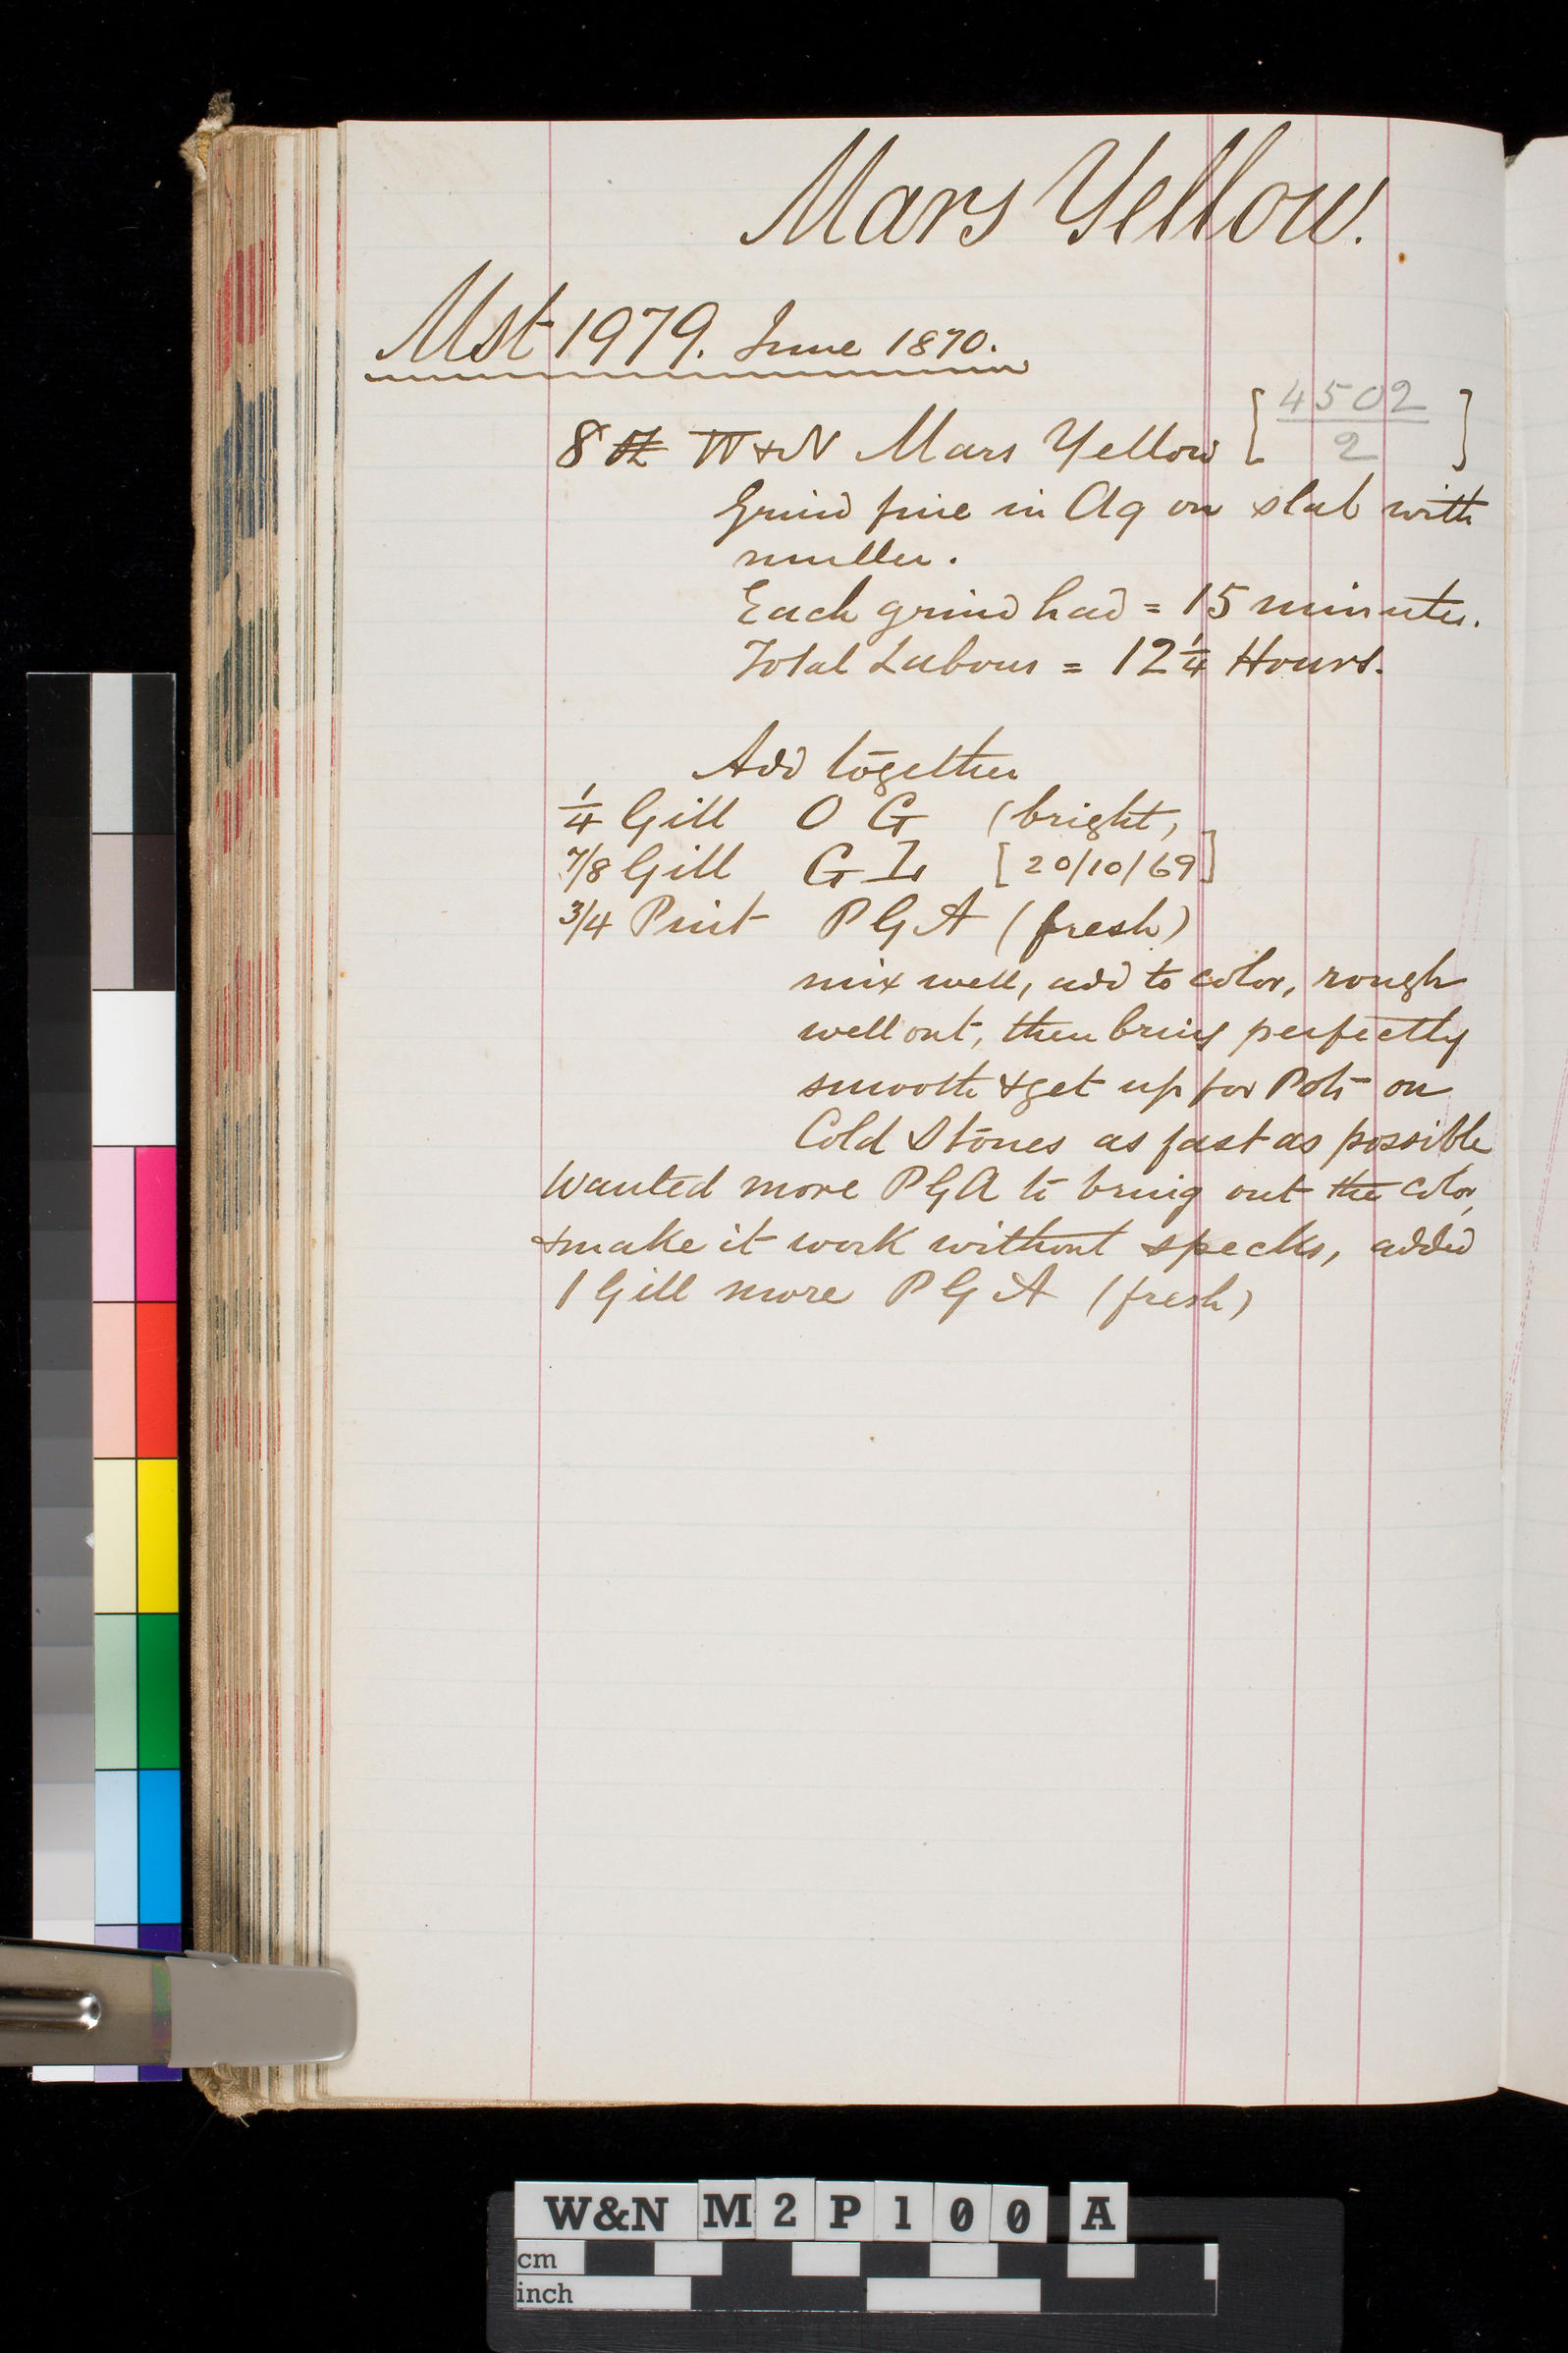 Mars Yellow.
Mst 1979. June 1870.
8 lb W+N Mars Yellow [4502/2]
Grind fine in Aq on slab with
muller.
Each grind had = 15 minutes.
Total Labour = 12 1/4 Hours.
Add together
1/4 Gill O G (bright,
7/8 Gill G L [20/10/69]
3/4 Pint P G A (fresh)
mix well, add to color, rough
well out, then bring perfectly
smooth & get up for Pots on
Cold Stones as fast as possible
Wanted more P G A to bring out the color,
& make it work without specks, added
1 Gill more P G A (fresh)
W&N M2P100 A
cm
inch